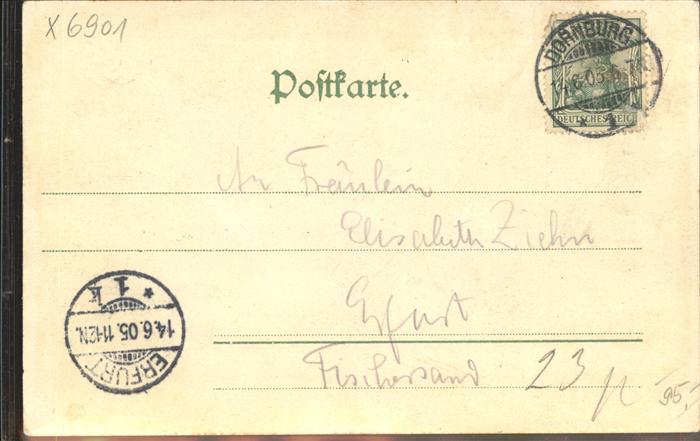 X 6901
DORNBURG
14.6.05.
* 1
DEUTSCHES REICH
Postkarte.
An Fräulein
Elisabeth Ziehn
Erfurt
Fischersand 23 p
* 1 k
14.6.05. 11-12N.
ERFURT
95,-